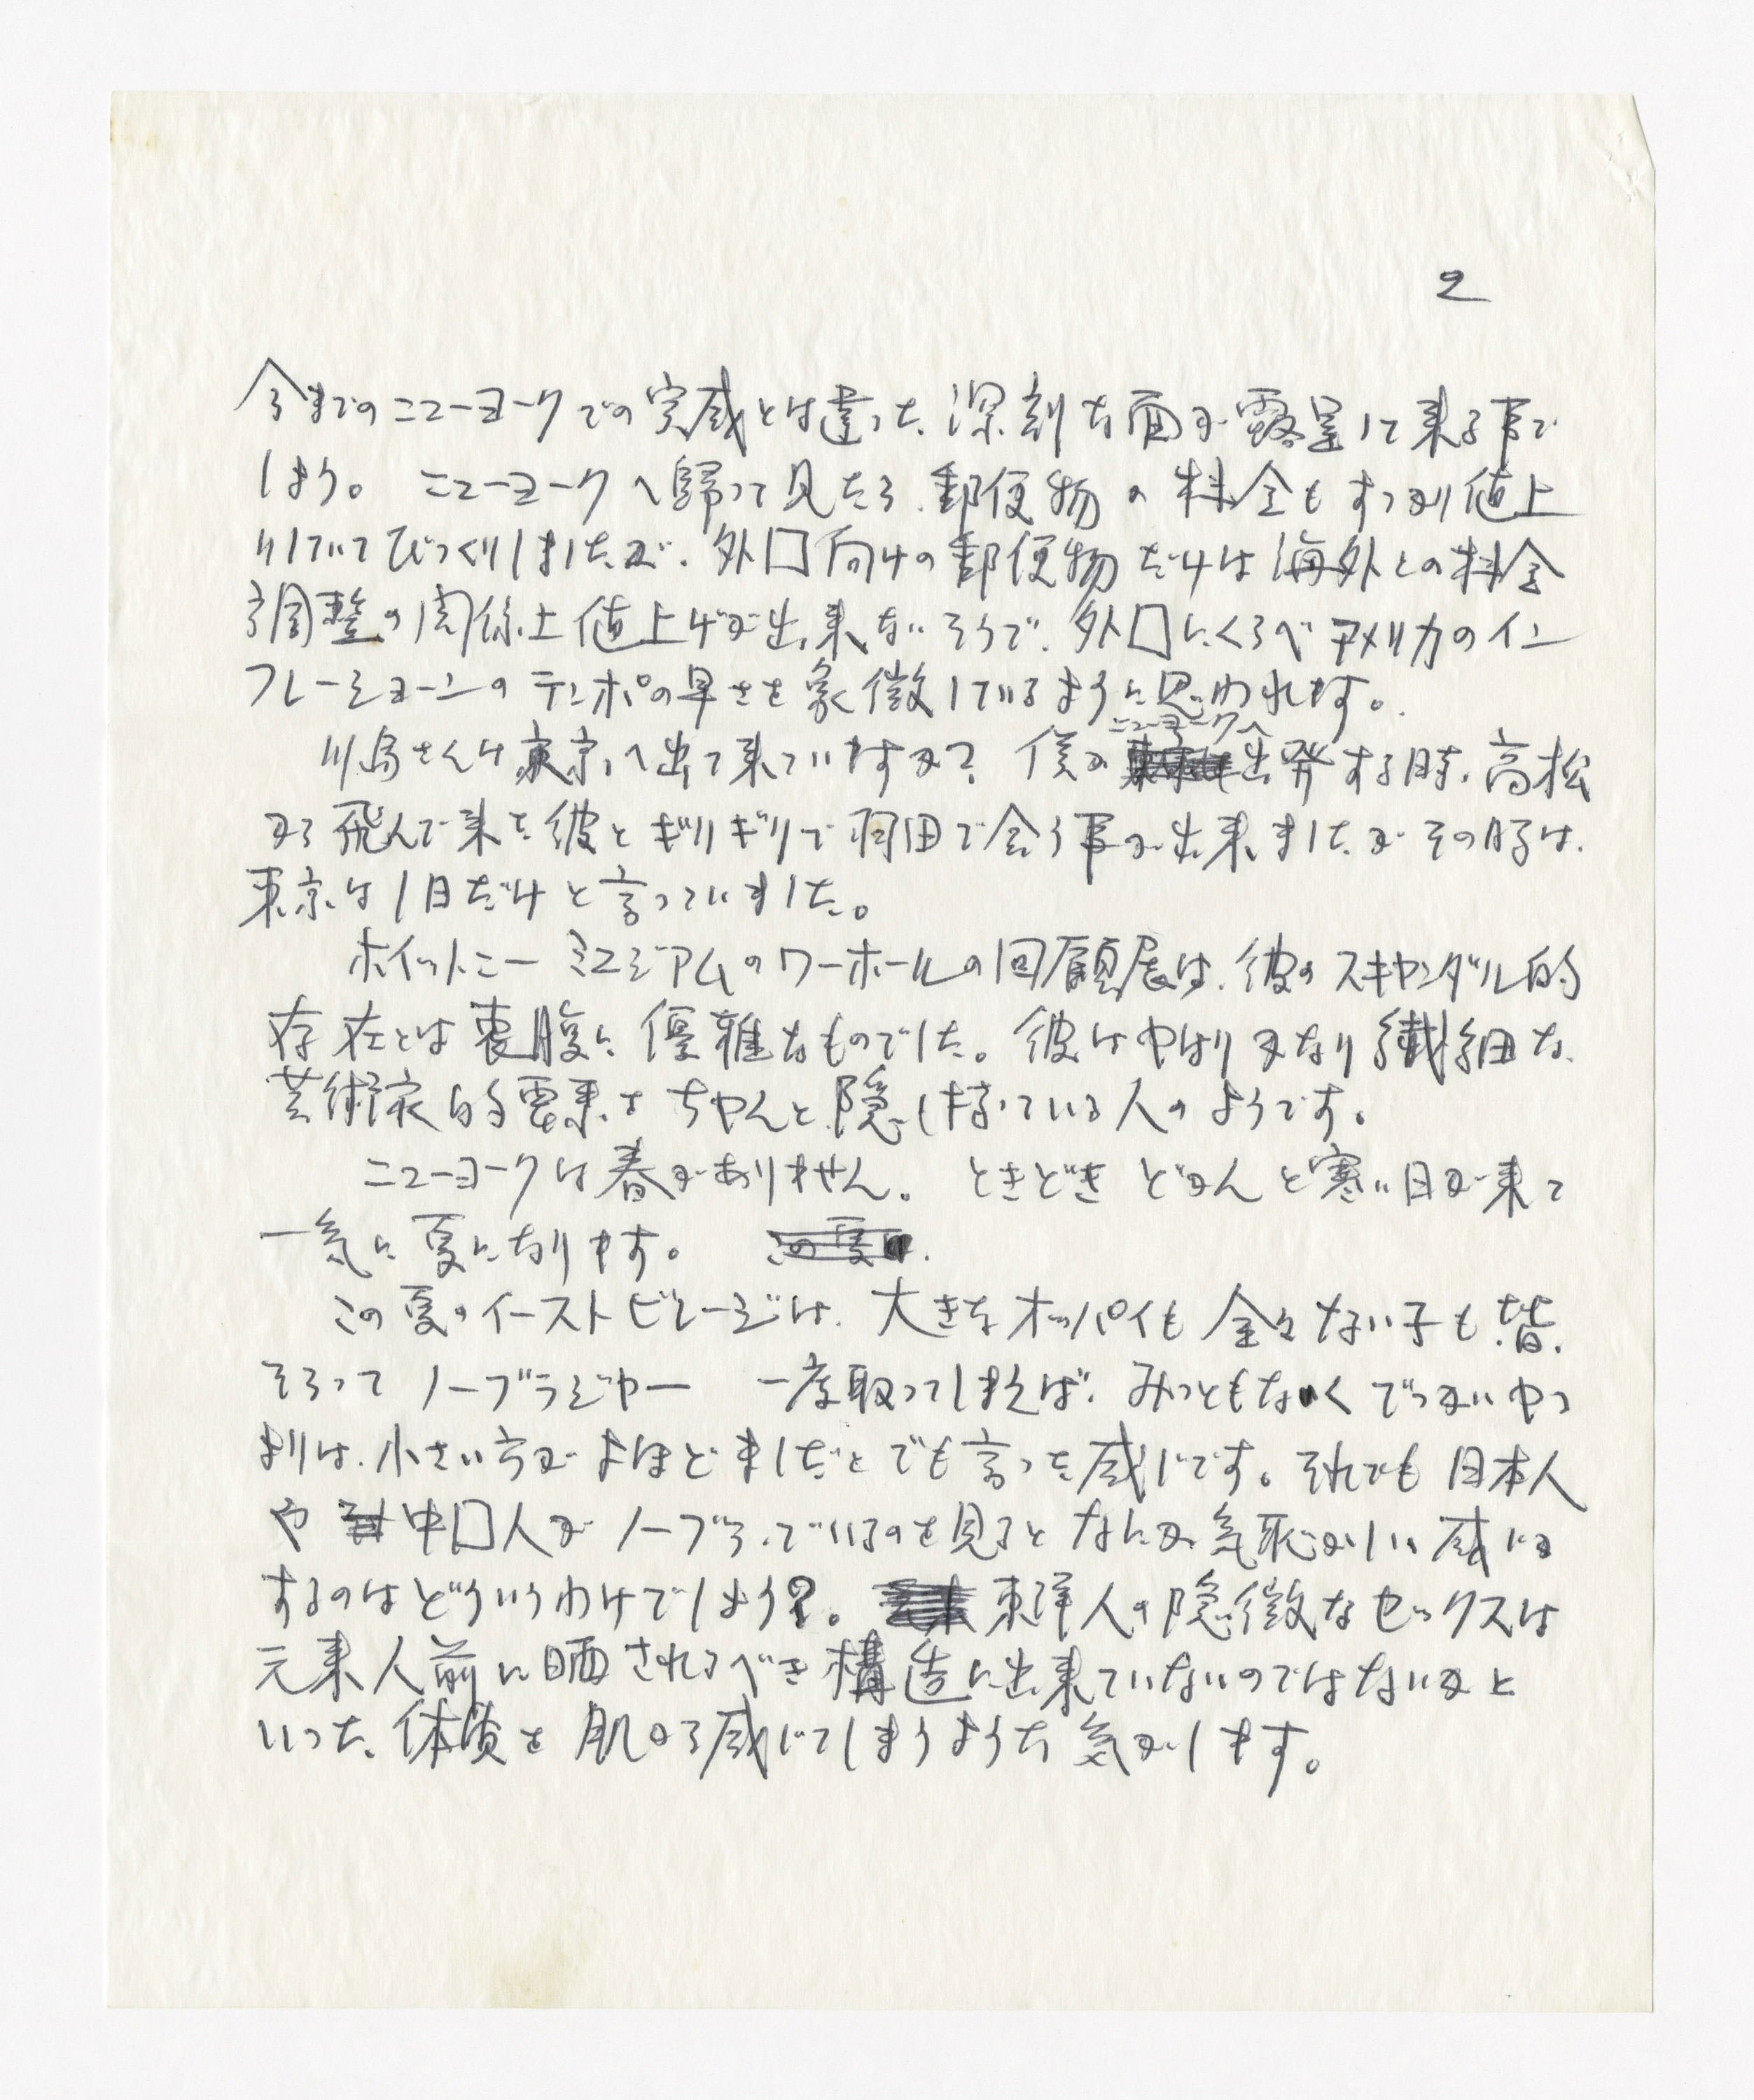 2
今までのニューヨークでの実感とは違った、深刻な面が露呈して来る事で
しょう。 ニューヨークへ帰って見たら、郵便物の料金もすっかり値上
りしていてびっくりしましたが、外囗向けの郵便物だけは海外との料金
調整の関係上値上げが出来ないそうで、外囗にくらべアメリカのイン
フレーションのテンポの早さを象徴しているように思われます。
川島さんは東京へ出て来ていますか？ 僕がニューヨークへ出発する時、高松
から飛んで来た彼とギリギリで羽田で会う事が出来ましたがその時は、
東京は1日だけと言っていました。
ホイットニーミュジアムのワーホールの回顧展は、彼のスキャンダル的
存在とは裏腹に優雅なものでした。彼はやはりかなり繊細な、
芸術家的要素をちゃんと隠し持っている人のようです。
ニューヨークは春がありません。 ときどき どかんと寒い日が来て
一気に夏になります。 この夏は
この夏のイーストビレージは、大きなオッパイも全々ない子も皆、
そろってノーブラジャー 一度取ってしまえば、みっともなくでっかいやつ
よりは、小さい方がよほどましだとでも言った感じです。それでも日本人
や中囗人がノーブラでいるのを見るとなにか気恥かしい感じが
するのはどういうわけでしょう？。 東洋人の隠微なセックスは
元来人前に晒されるべき構造に出来ていないのではないかと
いった、体質を肌から感じてしまうような気がします。